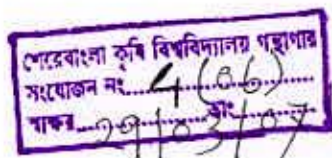 শেরেবাংলা কৃষি বিশ্ববিদ্যালয় গন্থাগার
সংযোজন নং..... 4 (06)
স্বাক্ষর..... তাং.....
29/03/07